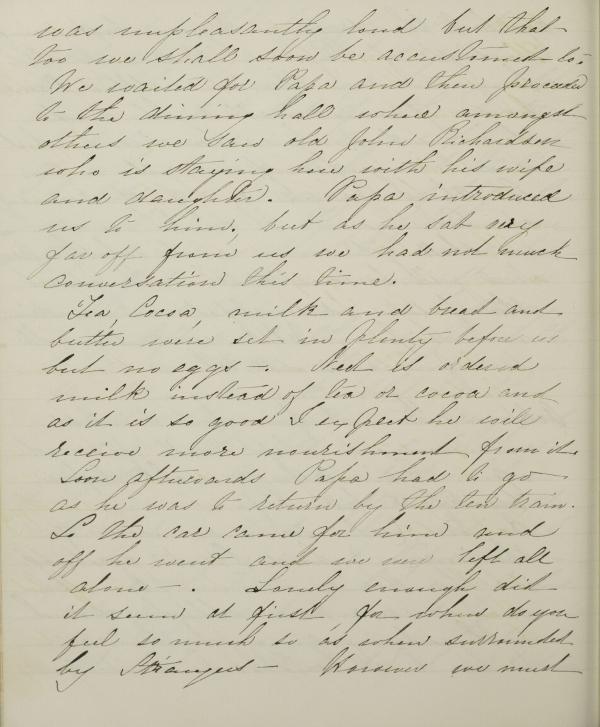 was unpleasantly loud but that
too we shall soon be accustomed to.
We waited for Papa and then proceeded
to the dining hall where amongst
others we saw old John Richardson
who is staying here with his wife
and daughter. Papa introduced
us to him, but as he sat very
far off from us we had not much
conversation this time.
Tea, Cocoa, milk and bread and
butter were set in plenty before us
but no eggs -. Ned is ordered
milk instead of tea or cocoa and
as it is so good I expect he will
receive more nourishment from it.
Soon afterwards Papa had to go
as he was to return by the ten train.
So the car came for him and
off he went and we were left all
alone - . Lonely enough did
it seem at first, for when do you
feel so much so as when surrounded
by strangers - However we must